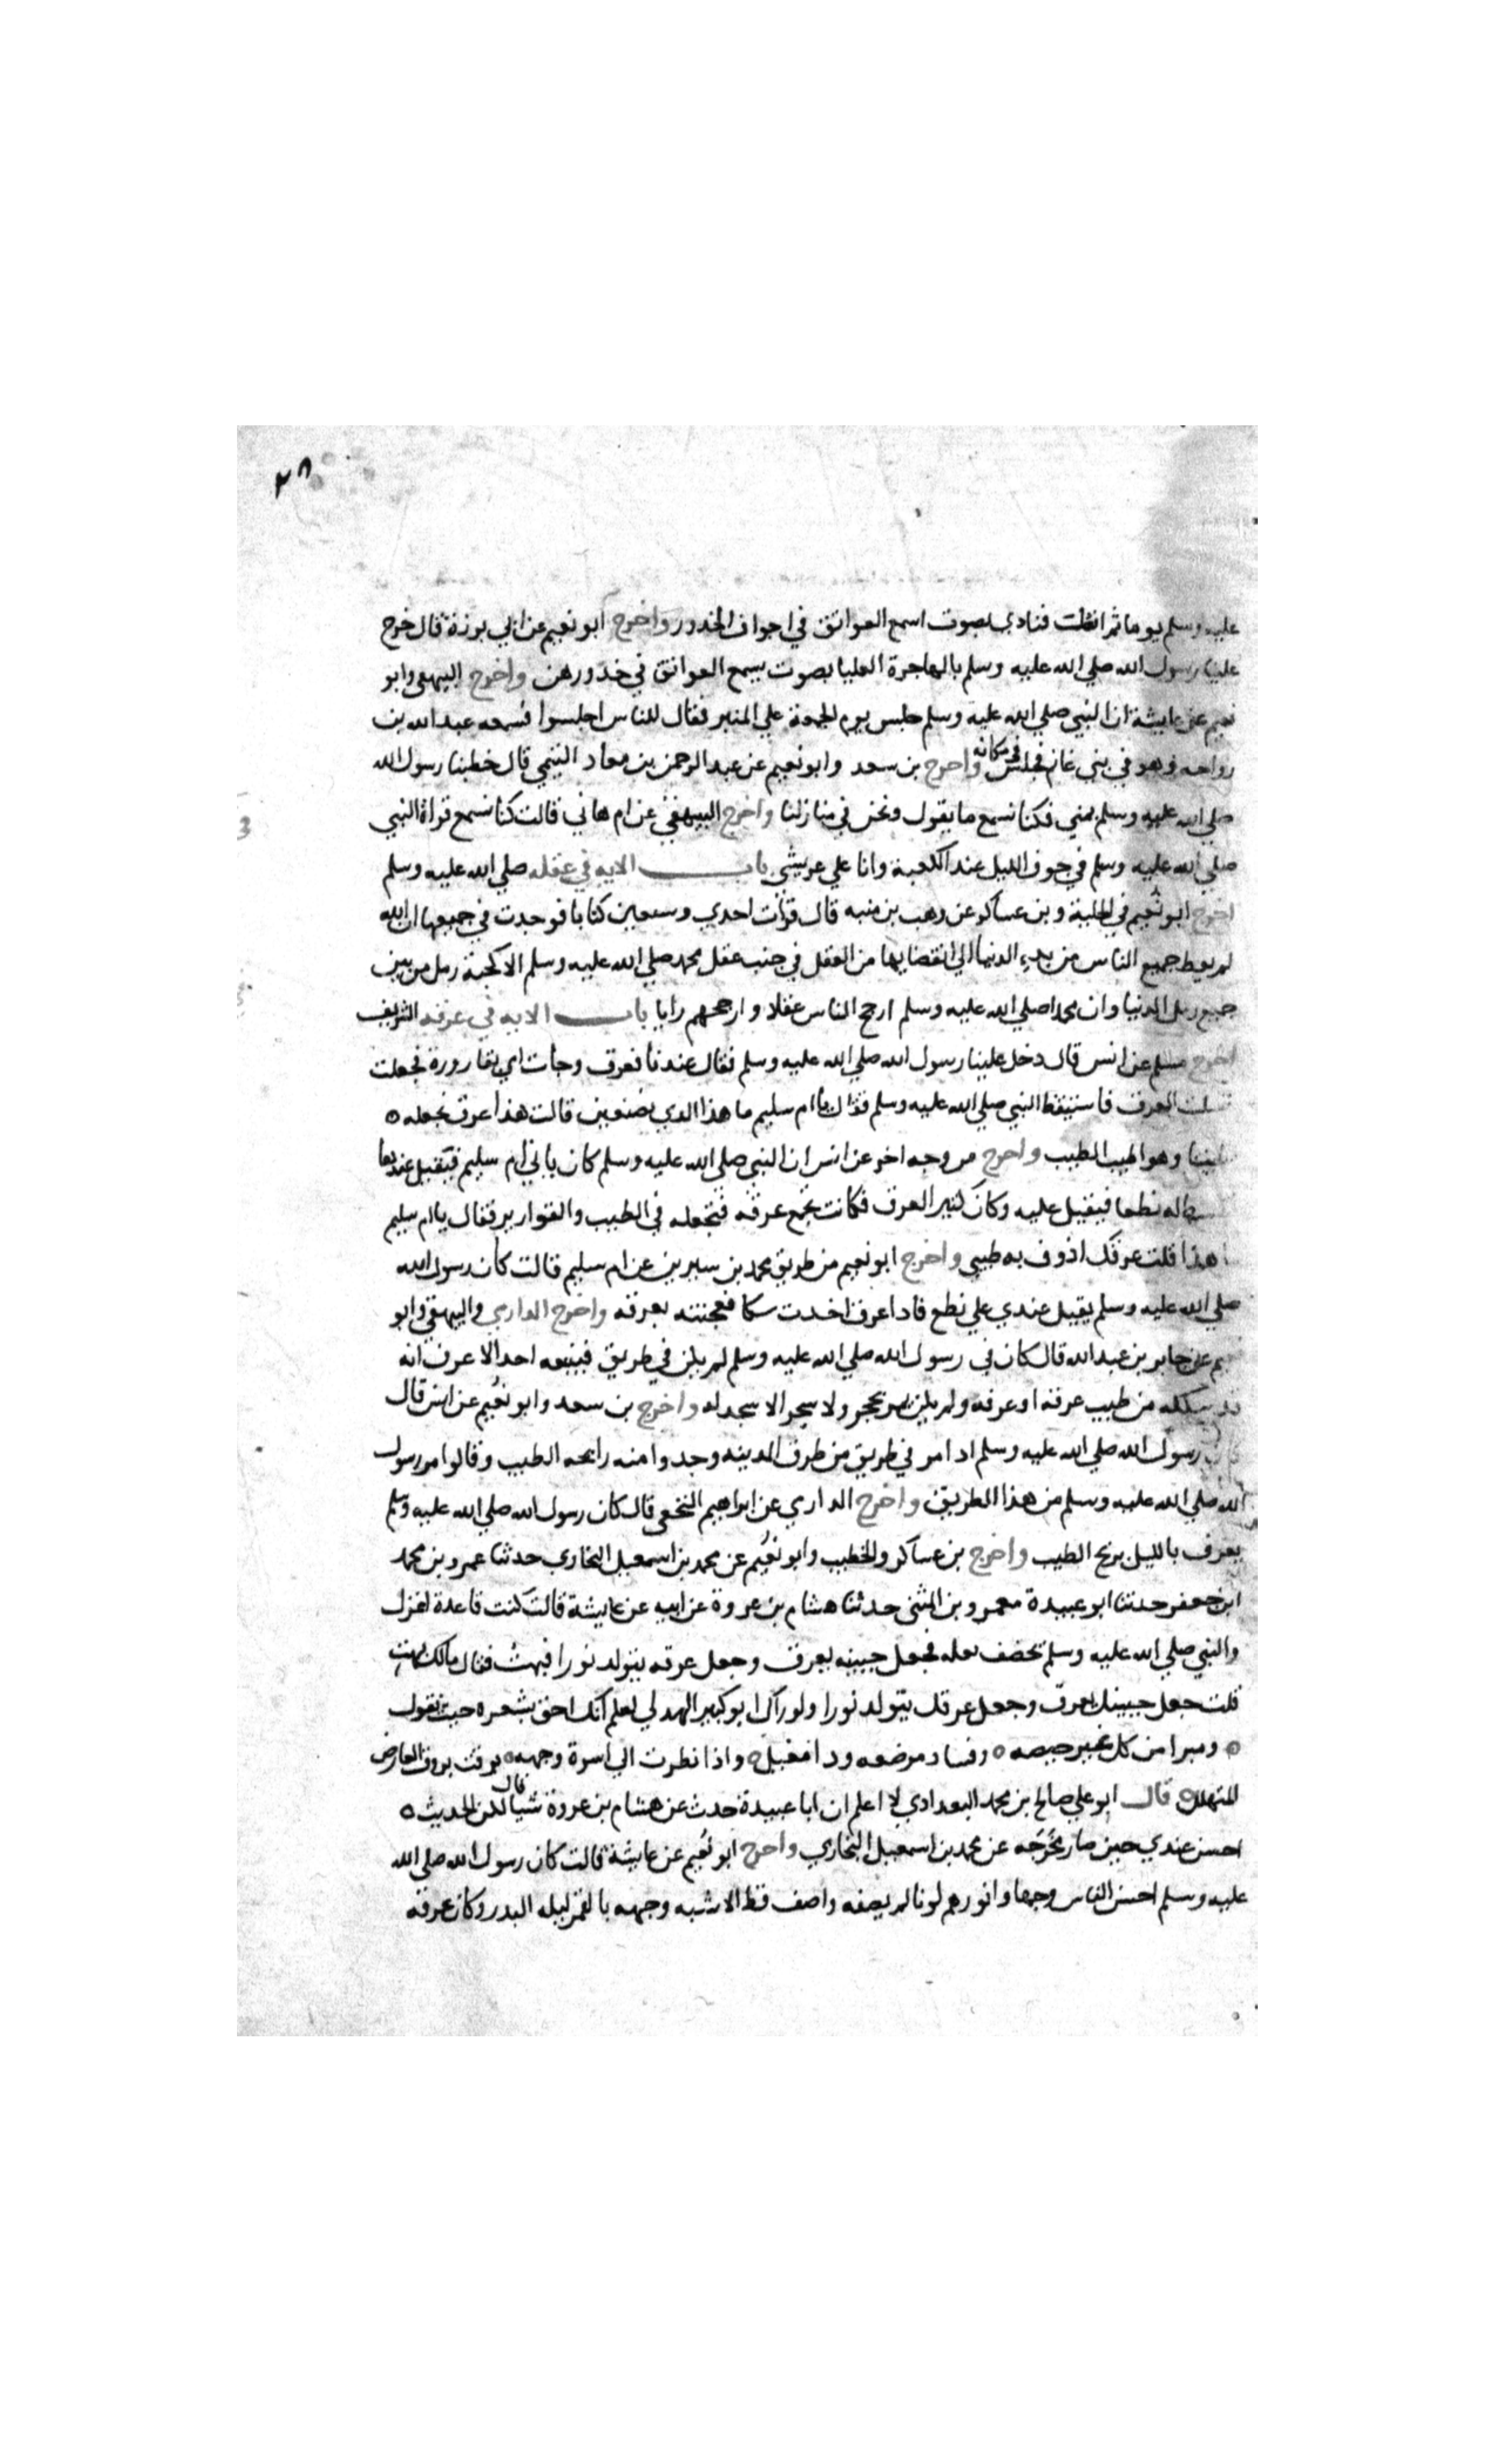 ٢٨
عليه وسلم يوما ثم انفلت فنادي بصوت اسمع العواتق في اجواف الخدور واخرج ابو نعيم عن ابي برزة قال خرج
علينا رسول الله صلي الله عليه وسلم بالهاجرة العليا بصوت يسمع العواتق في خدورهن واخرج البيهقي وابو
نعيم عن عايشة ان النبي صلي الله عليه وسلم جلس يوم الجمعة علي المنبر فقال للناس اجلسوا فسمعه عبد الله بن
رواحه وهو في بني غانم فجلس في مكانه واخرج بن سعد وابو نعيم عن عبد الرحمن بن معاد التيمي قال خطبنا رسول الله
صلي الله عليه وسلم بمني فكنا نسمع ما يقول ونحن في منازلنا واخرج البيهقي عن ام هاني قالت كنا نسمع قراة النبي
صلي الله عليه وسلم في جوف الليل عند الكعبة وانا علي عريشي باب الايه في عقله صلي الله عليه وسلم
اخرج ابو نعيم في الحلية وبن عساكر عن وهب بن منبه قال قرات احدي وسبعين كتابا فوجدت في جميعها ان الله
لم يعط جميع الناس من بدء الدنيا الي انقضايها من العقل في جنب عقل محمد صلي الله عليه وسلم الا كحبة رمل من بين
جميع رمل الدنيا وان محمدا صلي الله عليه وسلم ارجح الناس عقلا وارجحهم رايا باب الايه في عرقه الشريف
اخرج مسلم عن انس قال دخل علينا رسول الله صلي الله عليه وسلم فقال عندنا فعرق وجات امي بقارورة فجعلت
تسلت العرق فاستيقظ النبي صلي الله عليه وسلم فقال يا ام سليم ما هذا الدي تصنعين قالت هذا عرق نجعله ه
لطيبنا وهو اطيب الطيب واخرج من وجه اخر عن انس ان النبي صلي الله عليه وسلم كان ياتي ام سليم فيقيل عندها
تبسط له نطعا فيقيل عليه وكان كثير العرق فكانت تجمع عرقه فتجعله في الطيب والقوارير فقال يا ام سليم
ما هذا قلت عرقك اذوف به طيبي واخرج ابو نعيم من طريق محمد بن سيرين عن ام سليم قالت كان رسول الله
صلي الله عليه وسلم يقيل عندي علي نطع فادا عرق اخدت سكا فعجنته بعرقه واخرج الدارمي والبيهقي وابو
نعيم عن جابر بن عبد الله قال كان في رسول الله صلي الله عليه وسلم لم يكن في طريق فيتبعه احد الا عرف انه
قد سلكه من طيب عرقه او عرفه ولم يكن يمر بحجر ولا شجر الا سجد له واخرج بن سعد وابو نعيم عن انس قال
كان رسول الله صلي الله عليه وسلم ادا مر في طريق من طرق المدينه وجدوا منه رايحه الطيب وقالوا مر رسول
الله صلي الله عليه وسلم من هذا الطريق واخرج الدارمي عن ابراهيم النخعي قال كان رسول الله صلي الله عليه وسلم
يعرف بالليل بريح الطيب واخرج بن عساكر والخطيب وابو نعيم عن محمد بن اسمعيل البخاري حدثنا عمرو بن محمد
ابن جعفر حدثنا ابو عبيدة معمر وبن المثني حدثنا هشام بن عروة عن ابيه عن عايشة قالت كنت قاعدة اغزل
والنبي صلي الله عليه وسلم يخصف نعله فجعل جبينه يعرق وجعل عرقه يتولد نورا فبهت فقال مالك بهت
قلت جعل جبينك يعرق وجعل عرقك يتولد نورا ولو راك ابو كبير الهدلي لعلم انك احق بشعره حيث يقول
ه ومبرا من كل غبر حيضه ه وفساد مرضعه ودا مغيل ه واذا نظرت الي اسرة وجهه ه برقت بروق العارض
المتهلل ه قال ابو علي صالح بن محمد البغدادي لا اعلم ان ابا عبيدة حدث عن هشام بن عروة شيا قال لكن الحديث ه
احسن عندي حين صار مخرجه عن محمد بن اسمعيل البخاري واخرج ابو نعيم عن عايشة قالت كان رسول الله صلي الله
عليه وسلم احسن الناس وجها وانورهم لونا لم يصفه واصف قط الا شبه وجهه بالقمر ليله البدر وكان عرقه